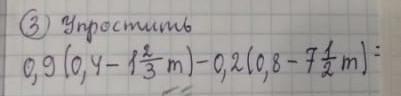 ③ Упростить
0,9(0,4-1 2/3 m)-0,2(0,8-7 1/2 m)=